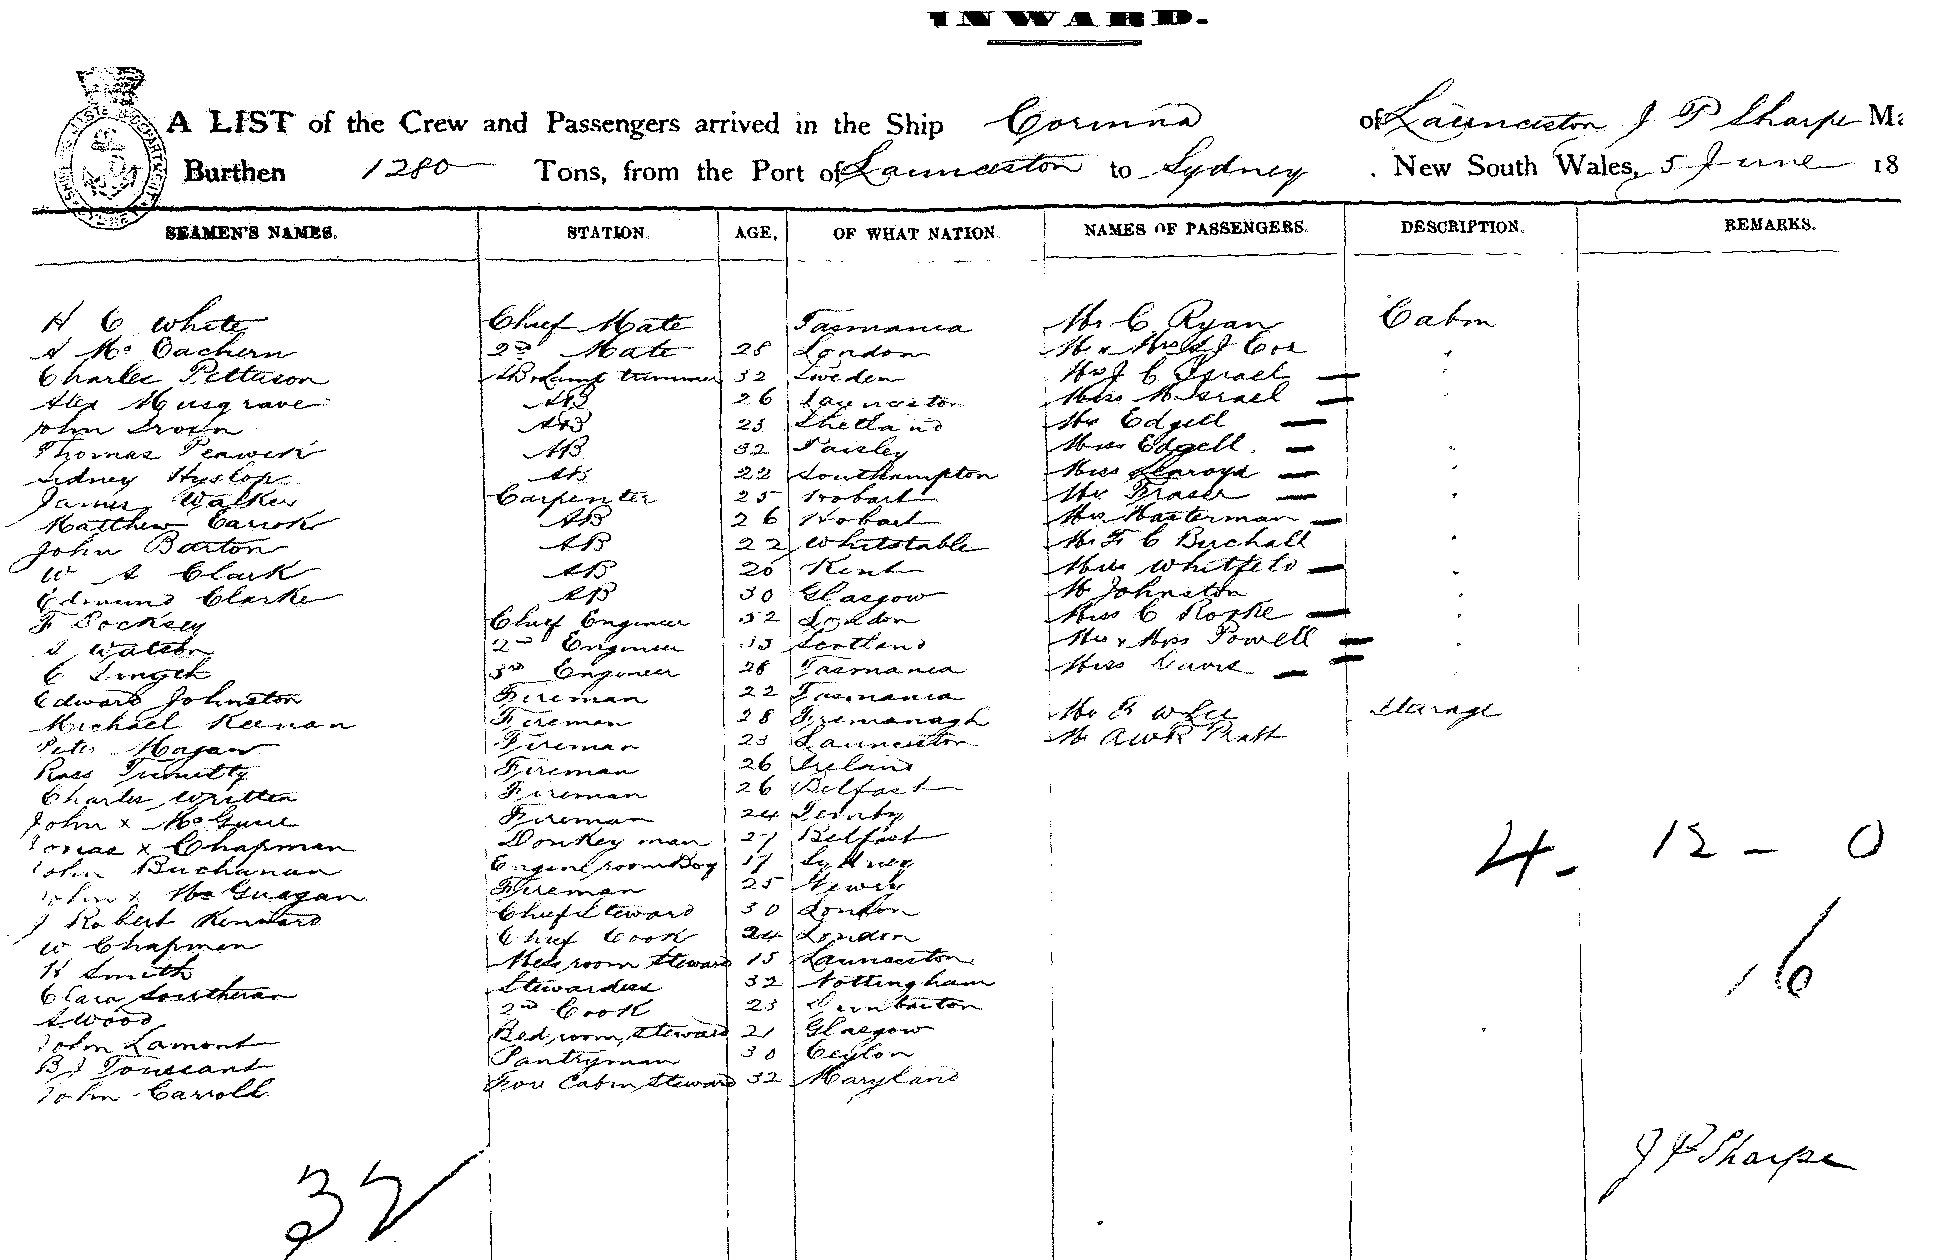 INWARD.
A LIST of the Crew and Passengers arrived in the Ship Corinna of Launceston J P Sharpe Ma
Burthen 1280 Tons, from the Port of Launceston to Sydney . New South Wales, 5 June 18
SEAMEN'S NAMES. STATION. AGE, OF WHAT NATION. NAMES OF PASSENGERS. DESCRIPTION. REMARKS.
H C White Chief Mate Tasmania Mr C Ryan Cabin
A McEachern 2nd Mate 28 London Mr & Mrs J Cox
Charles Petterson AB Lamp trimmer 32 Sweden Mr J C Israel
Alex Musgrave AB 26 Launceston Miss Israel
John AB 23 Shetland Mr Edgell
Thomas AB 32 Paisley Miss Edgell
Sidney Hyslop AB 22 Southampton Miss
James Walker Carpenter 25 Hobart Mr Fraser
Matthew AB 26 Hobart Masterman
John Barton AB 22 Whitstable Mr F C Birchall
W A Clark AB 20 Kent Miss Whitfeld
Edmund Clarke AB 30 Glasgow Mr Johnston
F Chief Engineer 52 London Miss C Rooke
Watson 2nd Engineer Scotland Mr & Miss Powell
C Lingth 3rd Engineer 28 Tasmania Miss Davis
Edward Johnston Fireman 22 Tasmania
Michael Keenan Fireman 28 Fremanagh Mr Steerage
Peter Magan Fireman 23 Launceston Mr Pratt
Ross Fireman 26 Ireland
Charles Written Fireman 26 Belfast
John x McGuire Fireman 24
x Chapman Donkey man 27 Belfast
John Buchanan Engine room Boy 17 Sydney
John x McGuigan Fireman 25 Newry
J Robert Kennard Chief Steward 30 London
W Chapman Chief Cook 24 London
H Smith Mess room Steward 15 Launceston
Clara Southeran Stewardess 32 Nottingham
A Wood 2nd Cook 23 Dumbarton
John Lamont Bed room Steward 21 Glasgow
B J Toussant Pantryman 30 Ceylon
John Carroll Fore Cabin Steward 32 Maryland
4 - 12 - 0
16
J P Sharpe
32